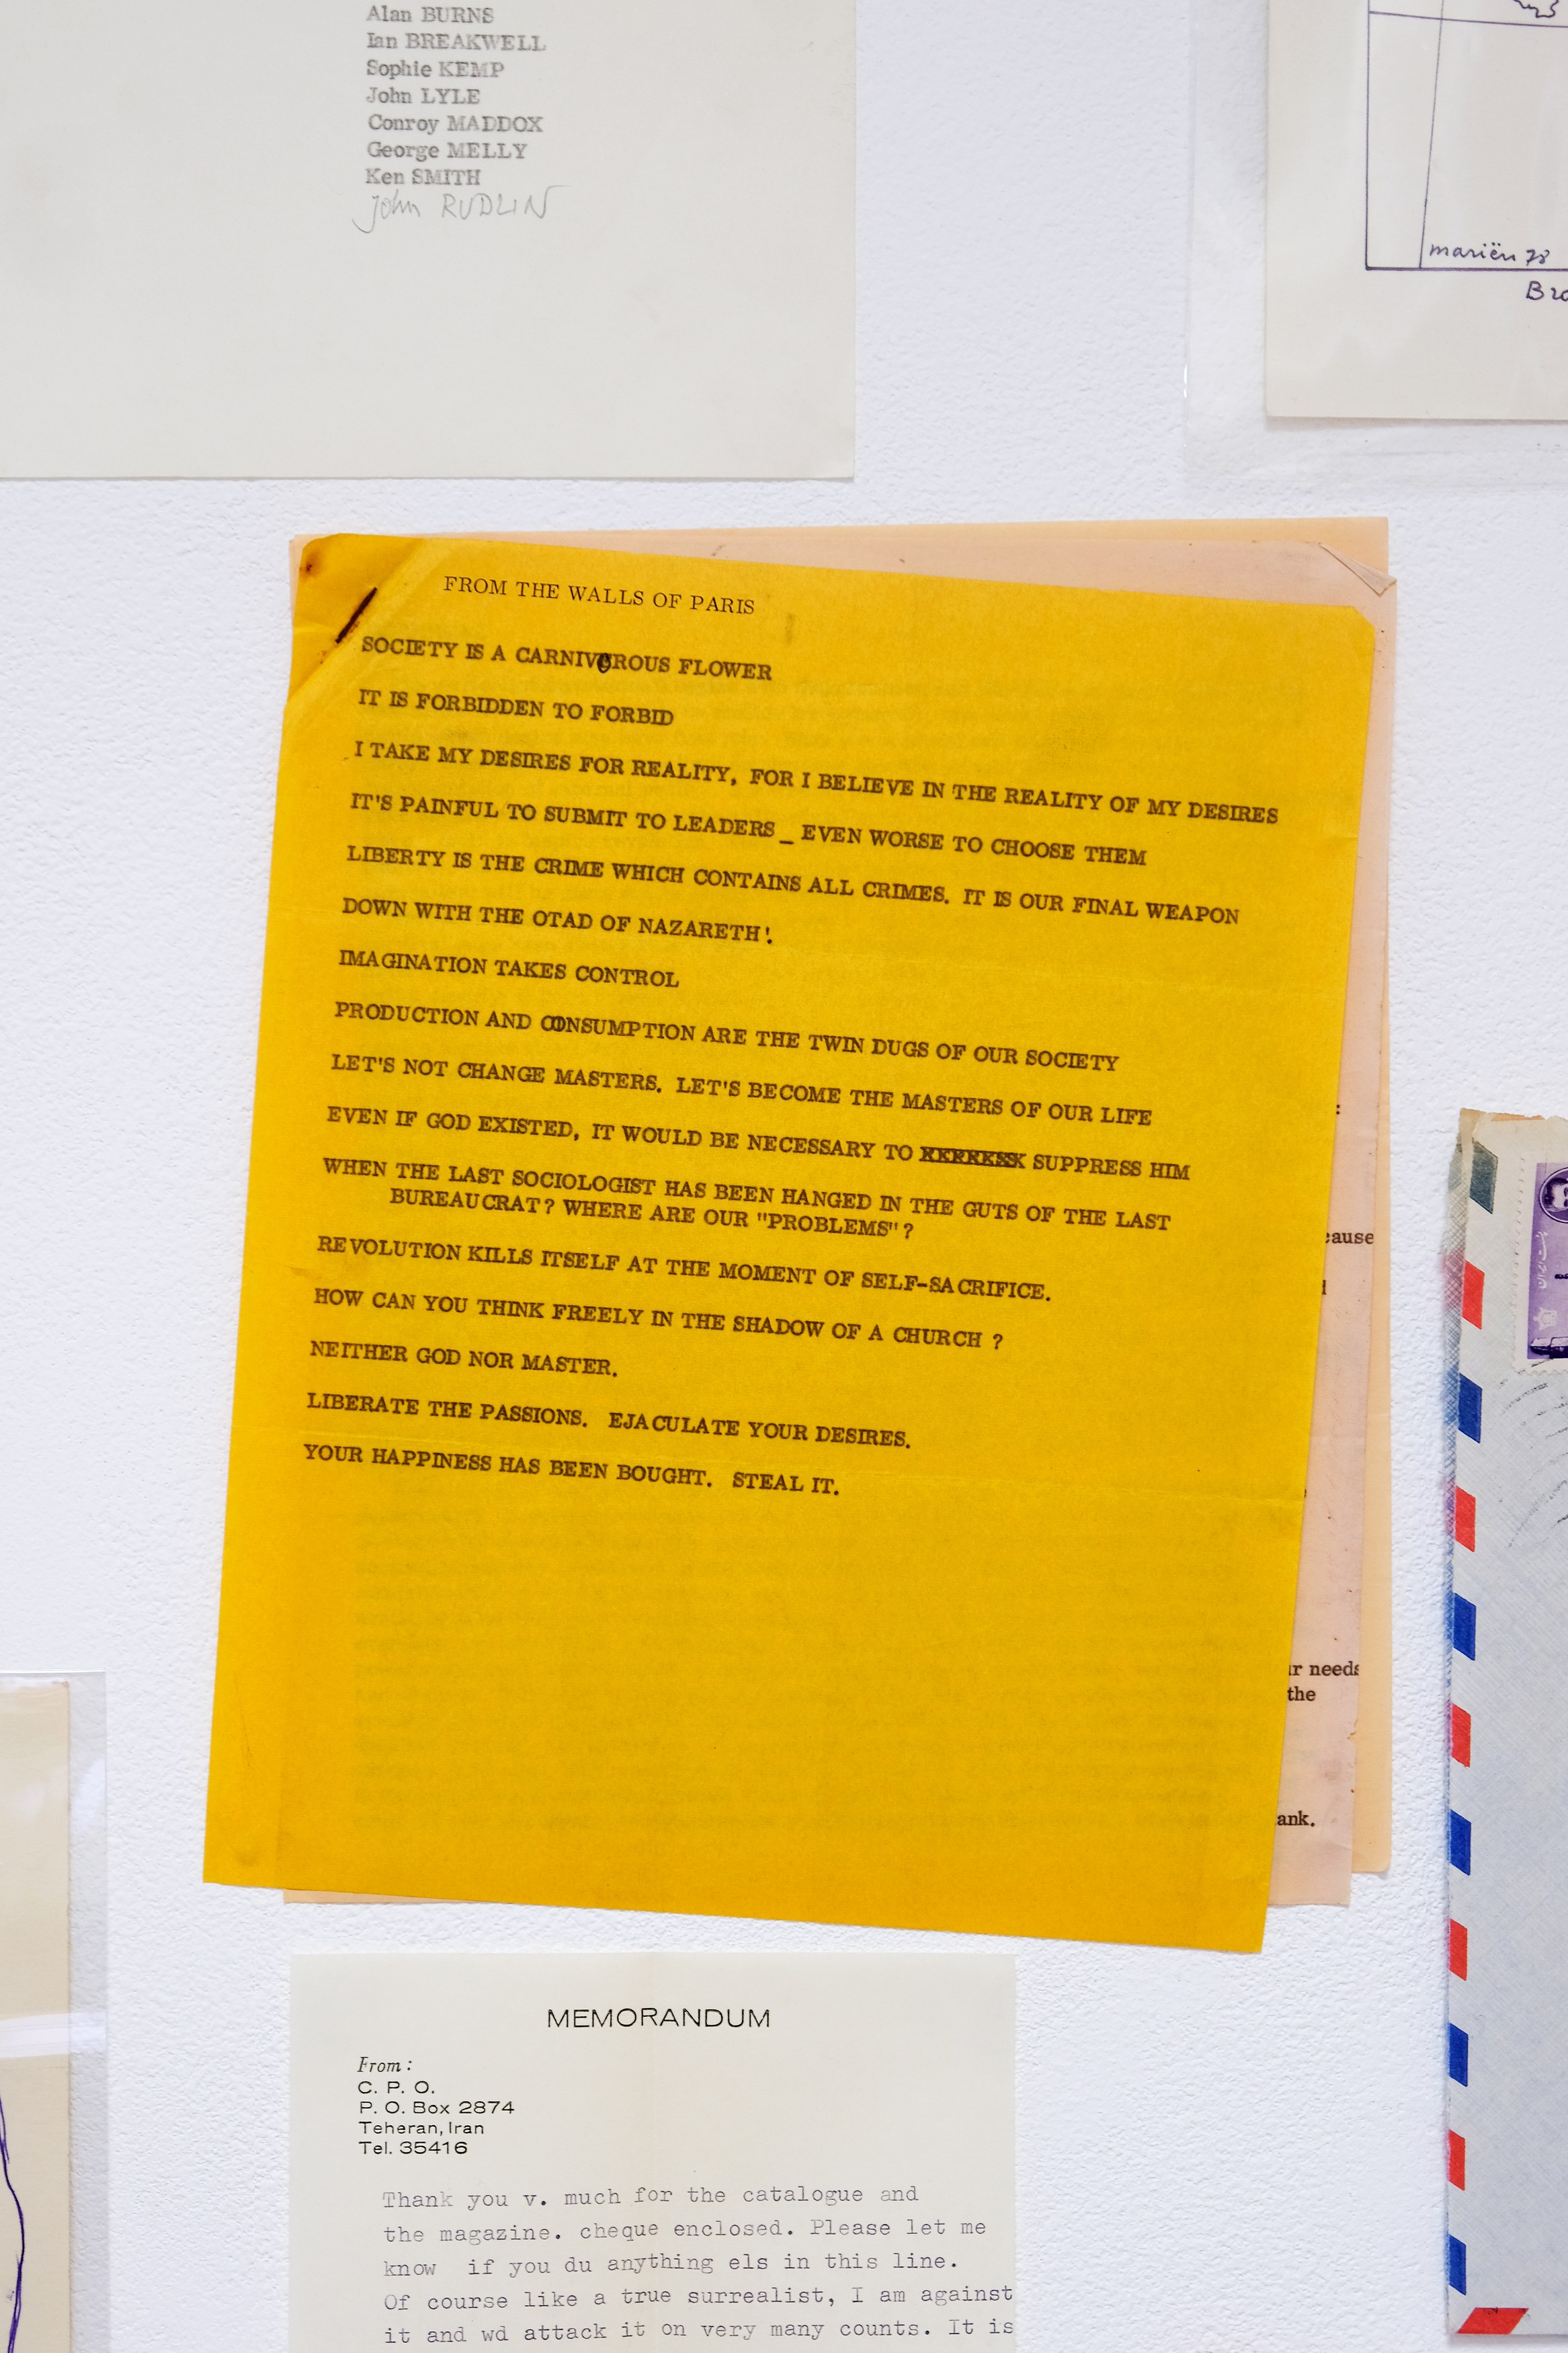 Alan BURNS
Ian BREAKWELL
Sophie KEMP
John LYLE
Conroy MADDOX
George MELLY
Ken SMITH
John RUDLIN
mariën 78
FROM THE WALLS OF PARIS
SOCIETY IS A CARNIVOROUS FLOWER
IT IS FORBIDDEN TO FORBID
I TAKE MY DESIRES FOR REALITY, FOR I BELIEVE IN THE REALITY OF MY DESIRES
IT'S PAINFUL TO SUBMIT TO LEADERS _ EVEN WORSE TO CHOOSE THEM
LIBERTY IS THE CRIME WHICH CONTAINS ALL CRIMES. IT IS OUR FINAL WEAPON
DOWN WITH THE OTAD OF NAZARETH!
IMAGINATION TAKES CONTROL
PRODUCTION AND CONSUMPTION ARE THE TWIN DUGS OF OUR SOCIETY
LET'S NOT CHANGE MASTERS. LET'S BECOME THE MASTERS OF OUR LIFE
EVEN IF GOD EXISTED, IT WOULD BE NECESSARY TO SUPPRESS HIM
WHEN THE LAST SOCIOLOGIST HAS BEEN HANGED IN THE GUTS OF THE LAST
BUREAUCRAT? WHERE ARE OUR "PROBLEMS"?
REVOLUTION KILLS ITSELF AT THE MOMENT OF SELF-SACRIFICE.
HOW CAN YOU THINK FREELY IN THE SHADOW OF A CHURCH ?
NEITHER GOD NOR MASTER.
LIBERATE THE PASSIONS. EJACULATE YOUR DESIRES.
YOUR HAPPINESS HAS BEEN BOUGHT. STEAL IT.
cause
needs
the
ank.
MEMORANDUM
From:
C. P. O.
P. O. Box 2874
Teheran, Iran
Tel. 35416
Thank you v. much for the catalogue and
the magazine. cheque enclosed. Please let me
know if you du anything els in this line.
Of course like a true surrealist, I am against
it and wd attack it on very many counts. It is